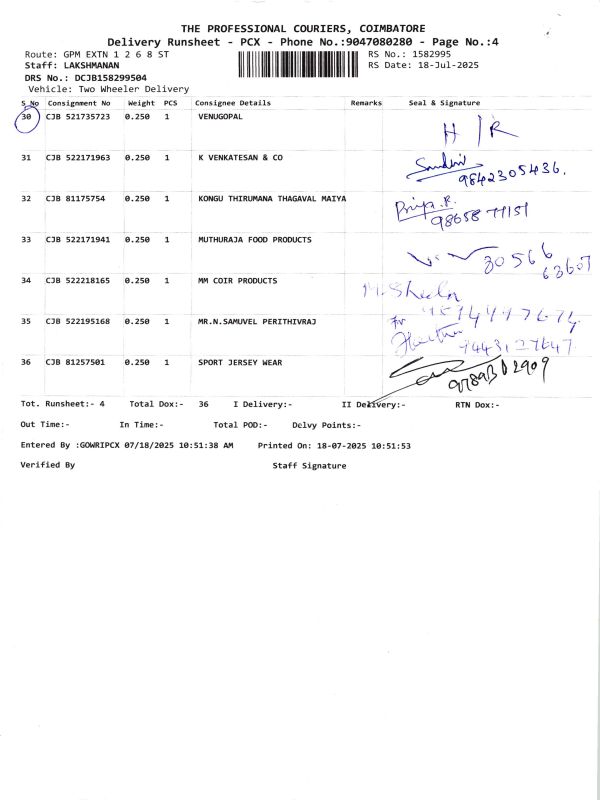 THE PROFESSIONAL COURIERS, COIMBATORE
Delivery Runsheet - PCX - Phone No.:9047080280 - Page No.:4
Route: GPM EXTN 1 2 6 8 ST RS No.: 1582995
Staff: LAKSHMANAN RS Date: 18-Jul-2025
DRS No.: DCJB158299504
Vehicle: Two Wheeler Delivery
S_No Consignment No Weight PCS Consignee Details Remarks Seal & Signature
30 CJB 521735723 0.250 1 VENUGOPAL
H/R
31 CJB 522171963 0.250 1 K VENKATESAN & CO
9842305436.
32 CJB 81175754 0.250 1 KONGU THIRUMANA THAGAVAL MAIYA
Priya.R.
98658 77151
33 CJB 522171941 0.250 1 MUTHURAJA FOOD PRODUCTS
30566
63607
34 CJB 522218165 0.250 1 MM COIR PRODUCTS
M. Sheela
35 CJB 522195168 0.250 1 MR.N.SAMUVEL PERITHIVRAJ
9443127647
36 CJB 81257501 0.250 1 SPORT JERSEY WEAR
Tot. Runsheet:- 4 Total Dox:- 36 I Delivery:- II Delivery:- RTN Dox:-
Out Time:- In Time:- Total POD:- Delvy Points:-
Entered By :GOWRIPCX 07/18/2025 10:51:38 AM Printed On: 18-07-2025 10:51:53
Verified By Staff Signature